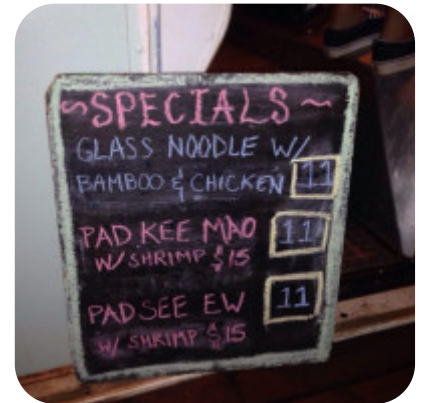 ~SPECIALS~
GLASS NOODLE W/
BAMBOO & CHICKEN 11
PAD KEE MAO 11
W/ SHRIMP $15
PAD SEE EW 11
W/ SHRIMP $15